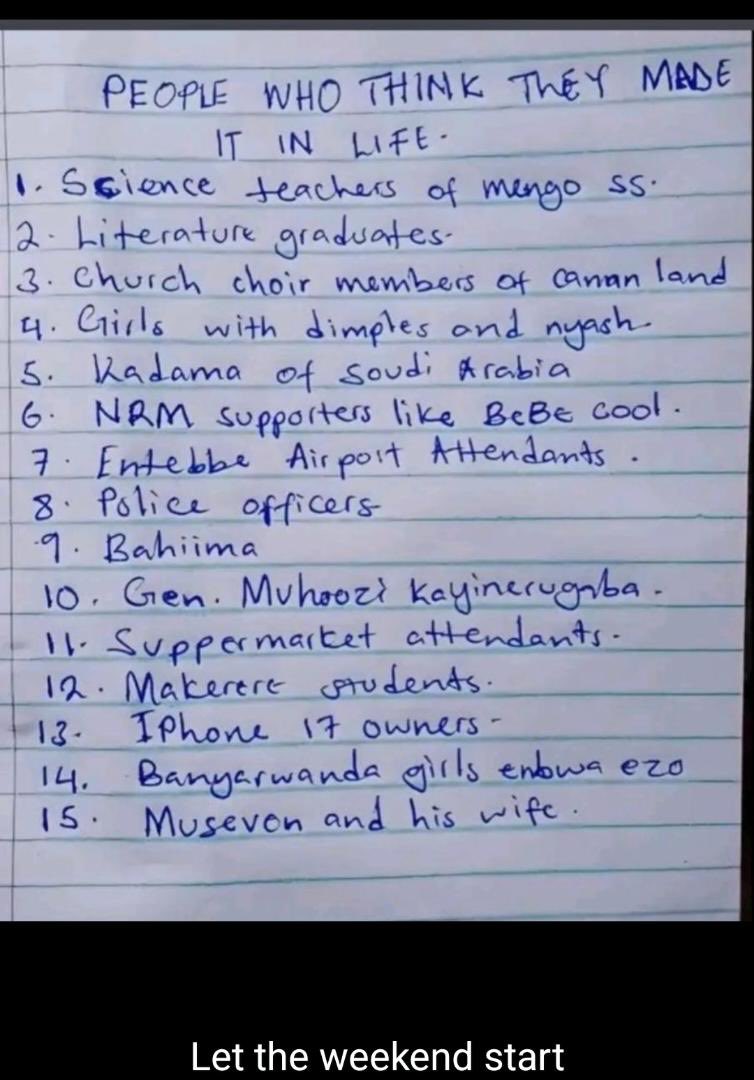 PEOPLE WHO THINK THEY MADE
IT IN LIFE.
1. Science teachers of mengo ss.
2. Literature graduates.
3. Church choir members of canan land
4. Girls with dimples and nyash
5. Kadama of Soudi Arabia
6. NRM supporters like BeBE cool.
7. Entebbe Airport Attendants.
8. Police officers
9. Bahiima
10. Gen. Muhoozi Kayinerugaba.
11. Suppermarket attendants.
12. Makerere students.
13. IPhone 17 owners-
14. Banyarwanda girls enbwa ezo
15. Musevon and his wife.
Let the weekend start